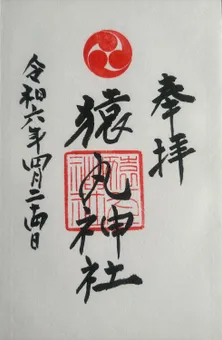 奉拝
猿丸神社
令和六年四月二十四日